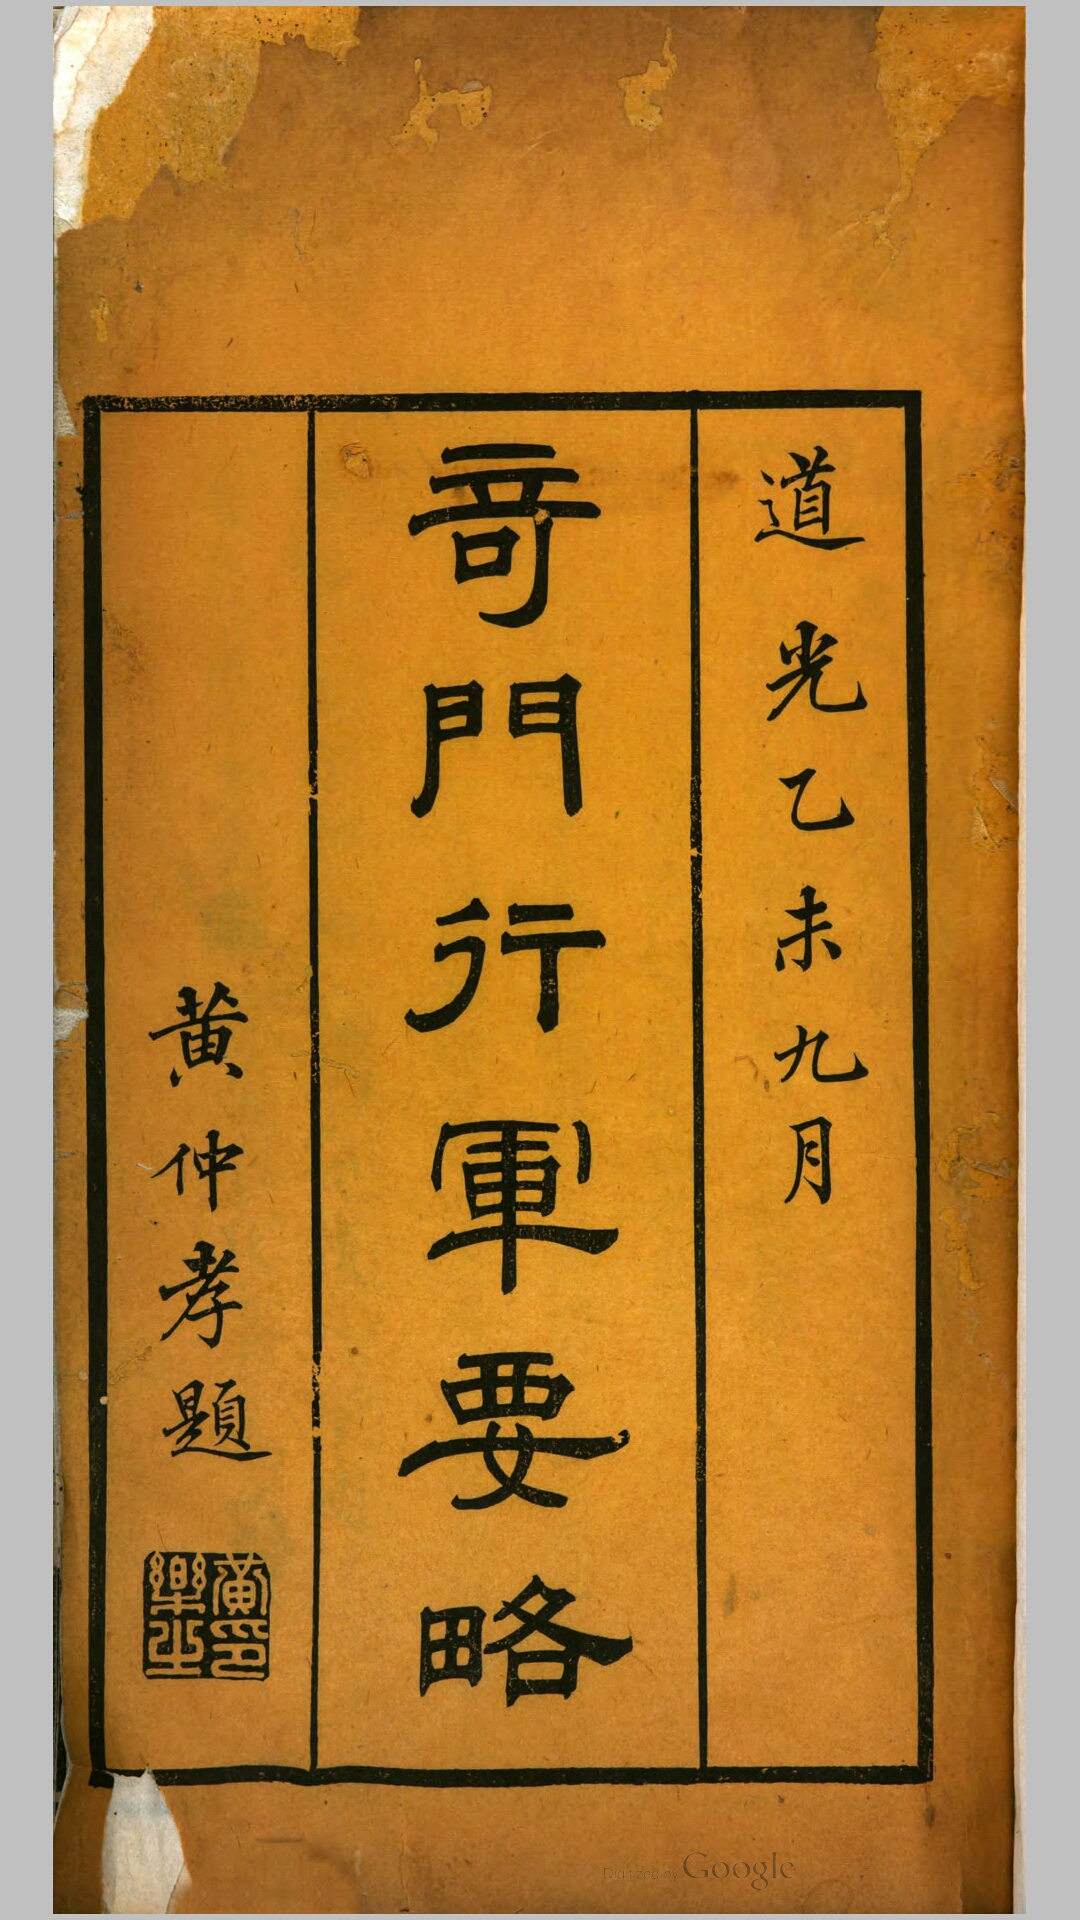 道光乙未九月
竒門行軍要略
黄仲孝題
黄印樂之
Digitized by Google